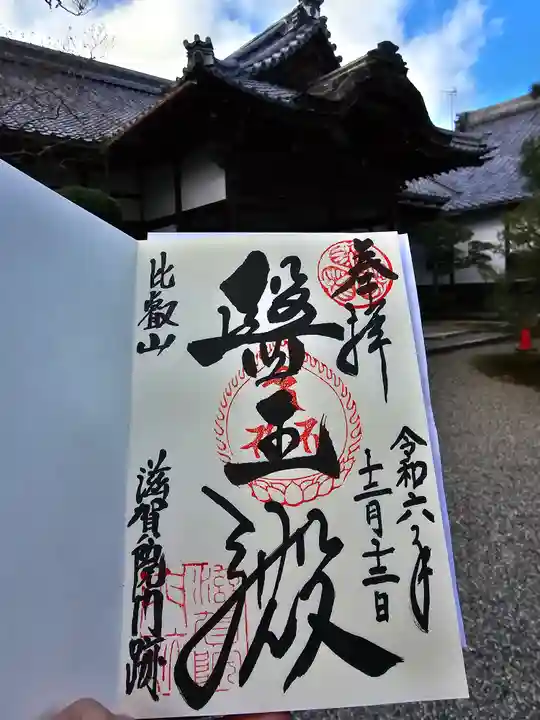 奉拝
令和六年
十二月十二日
醫王殿
比叡山
滋賀院門跡